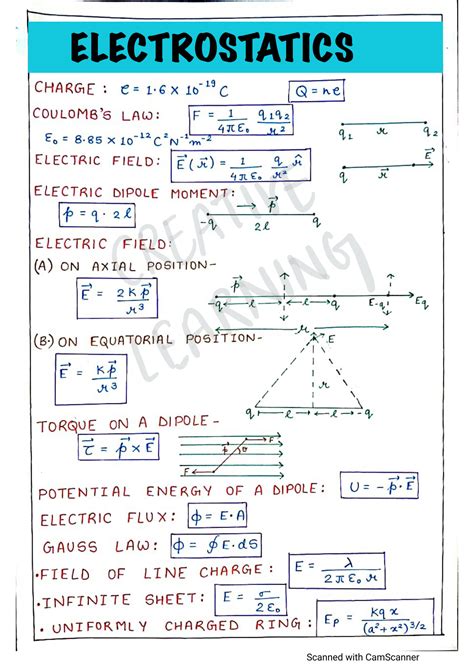 ELECTROSTATICS
CHARGE : e = 1.6 x 10⁻¹⁹ C Q = ne
COULOMB'S LAW: F = 1/4πε₀ q₁q₂/r²
q₁ r q₂
ε₀ = 8.85 x 10⁻¹² C² N⁻¹ m⁻²
ELECTRIC FIELD: E⃗(r⃗) = 1/4πε₀ q/r² r̂
q r⃗ E⃗
ELECTRIC DIPOLE MOMENT:
p = q · 2l
-q p⃗ q
2l
ELECTRIC FIELD:
(A) ON AXIAL POSITION-
E⃗ = 2Kp⃗/r³
p⃗
-q l l q E-q Eq
r
(B) ON EQUATORIAL POSITION-
E⃗ = Kp⃗/r³
E
r
q l l -q
TORQUE ON A DIPOLE -
τ⃗ = p⃗ x E⃗
p⃗ θ F
F
POTENTIAL ENERGY OF A DIPOLE: U = - p⃗ · E⃗
ELECTRIC FLUX: ϕ = E · A
GAUSS LAW: ϕ = ∮ E · dS
• FIELD OF LINE CHARGE : E = λ/2πε₀r
• INFINITE SHEET: E = σ/2ε₀
• UNIFORMLY CHARGED RING: Ep = Kqx/(a²+x²)^3/2
CREATIVE
LEARNING
Scanned with CamScanner